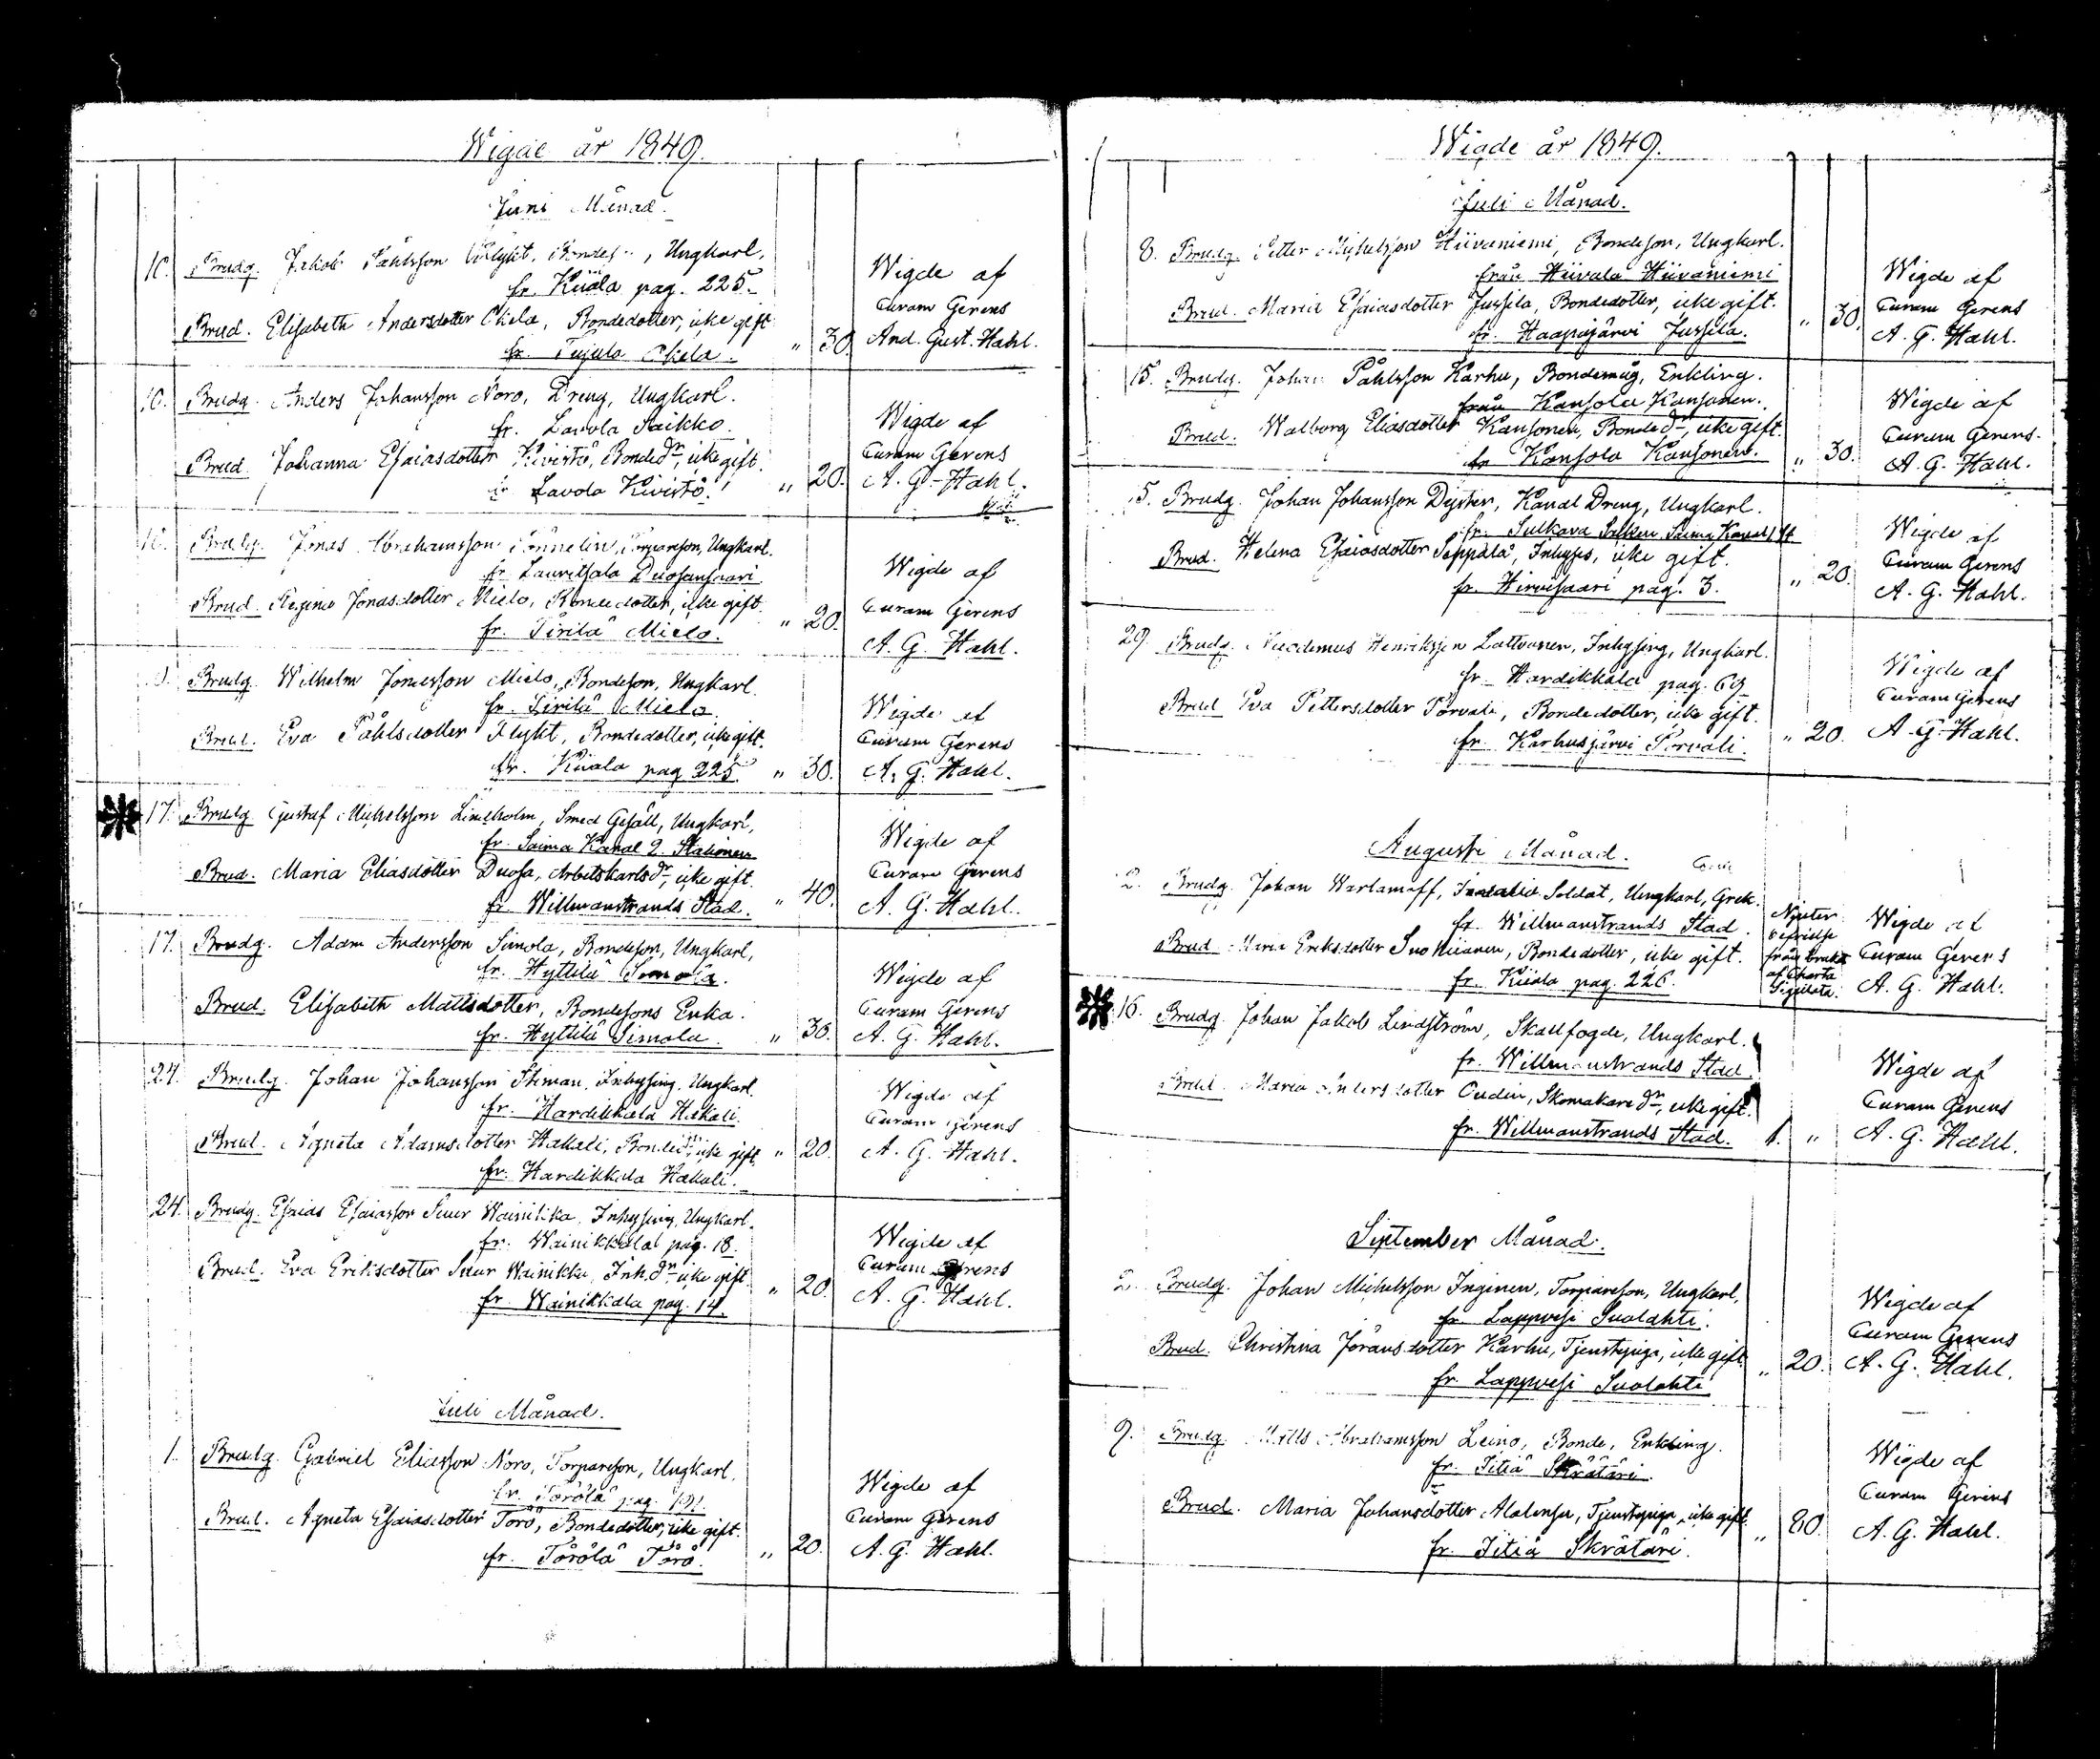 Wigde år 1849.
Juni Månad.
10. Brudg. Jakob Påhlsson Flykt, Bondes., Ungkarl,
fr. Kiiala pag. 225.
Brud. Elisabeth Andersdotter Okela, Bondedotter, icke gift
fr. Tujula Okela.
" 30.
Wigde af
Curam Gerens
And. Gust. Hahl.
10. Brudg. Anders Johansson Noro, Dreng, Ungkarl.
fr. Lavola Saikko.
Brud. Johanna Esaiasdotter Kivistö, Bonded:r, icke gift.
fr Lavola Kivistö.
" 20.
Wigde af
Curam Gerens
A. G. Hahl.
10. Brudg. Jonas Abrahamsson, Torpareson, Ungkarl.
fr Lauritsala Duosansaari
Brud. Regina Jonasdotter Mielo, Bondedotter, icke gift.
fr. Tirilä Mielo.
" 20.
Wigde af
Curam Gerens
A. G. Hahl.
Brudg. Wilhelm Jonasson Mielo, Bondeson, Ungkarl.
fr. Tirilä Mielo.
Brud. Eva Påhlsdotter Flykt, Bondedotter, icke gift.
fr. Kiiala pag 225.
" 30.
Wigde af
Curam Gerens
A. G. Hahl.
17. Brudg. Gustaf Michelsson Lindholm, Smed Gesäll, Ungkarl,
fr. Saima Kanal 2. Stationen
Brud. Maria Eliasdotter Duosa, Arbetskarlsd:r, icke gift.
fr. Willmanstrands Stad.
" 40.
Wigde af
Curam Gerens
A. G. Hahl.
17. Brudg. Adam Andersson Simola, Bondeson, Ungkarl,
fr. Hyttilä Simola.
Brud. Elisabeth Mattsdotter, Bondesons Enka.
fr. Hyttilä Simola.
" 30.
Wigde af
Curam Gerens
A. G. Hahl.
24. Brudg. Johan Johansson Stiman, Inhysing, Ungkarl.
fr. Hardikkala Hakali.
Brud. Agneta Adamsdotter Hakali, Bonded:r, icke gift.
fr. Hardikkala Hakali.
" 20.
Wigde af
Curam Gerens
A. G. Hahl.
24. Brudg. Esaias Esaiasson Suur Wainikka, Inhysing, Ungkarl.
fr. Wainikkala pag. 18.
Brud. Eva Eriksdotter Suur Wainikka, Inh.d:r icke gift.
fr. Wainikkala pag. 14.
" 20.
Wigde af
Curam Gerens
A. G. Hahl.
Juli Månad.
1. Brudg. Gabriel Eliasson Noro, Torpareson, Ungkarl.
fr. Törölä pag. 191.
Brud. Agneta Esaiasdotter Törö, Bondedotter, icke gift.
fr. Törölä Törö.
" 20.
Wigde af
Curam Gerens
A. G. Hahl.
Wigde år 1849.
Juli Månad.
8. Brudg. Petter Michelsson Hiivaniemi, Bondeson, Ungkarl.
från Hiivala Hiivaniemi
Brud. Maria Esaiasdotter Jussila, Bondedotter, icke gift.
fr. Haapajärvi Jussila.
" 30.
Wigde af
Curam Gerens
A. G. Hahl.
15. Brudg. Johan Påhlsson Karhu, Bondemåg, Enkling.
från Kansola Kansonen.
Brud. Walborg Eliasdotter Kansonen, Bonded:r, icke gift.
fr Kansola Kansonen.
" 30.
Wigde af
Curam Gerens.
A. G. Hahl.
15. Brudg. Johan Johansson Dyster, Kanal Dreng, Ungkarl.
fr. Sulkava Socken Saima Kanal 1 St
Brud. Helena Esaiasdotter Seppälä, Inhyses, icke gift.
fr. Hirvisaari pag. 3.
" 20.
Wigde af
Curam Gerens
A. G. Hahl.
29. Brudg. Nicodemus Henriksson Lattvanen, Inhysing, Ungkarl.
fr. Hardikkala pag. 69
Brud Eva Pettersdotter Porvali, Bondedotter, icke gift.
fr. Karhusjärvi Porvali.
" 20.
Wigde af
Curam Gerens
A. G. Hahl.
Augusti Månad.
2. Brudg. Johan Warlamoff, Invalid Soldat, Ungkarl, Grek.
fr. Willmanstrands Stad.
Brud Maria Eriksdotter Suo Kiianen, Bondedotter, icke gift.
fr. Kiiala pag. 226.
Njuter
befrielse
från bruket
af Charta
Sigillata.
Wigde af
Curam Gerens
A. G. Hahl.
16. Brudg. Johan Jakob Lindström, Skallfogde, Ungkarl.
fr. Willmanstrands Stad.
Brud. Maria Andersdotter Oudin, Skomakare d:r, icke gift.
fr. Willmanstrands Stad.
1. "
Wigde af
Curam Gerens
A. G. Hahl.
September Månad.
2. Brudg. Johan Michelsson Inginen, Torpareson, Ungkarl,
fr. Lappvesi Suolahti.
Brud. Christina Jöransdotter Karhu, Tjenstepiga, icke gift
fr. Lappvesi Suolahti
" 20.
Wigde af
Curam Gerens
A. G. Hahl.
9. Brudg. Matts Abrahamsson Leino, Bonde, Enkling.
fr. Iitiä Skrätäri.
Brud. Maria Johansdotter Alalensu, Tjenstepiga, icke gift.
fr. Iitiä Skrätäri.
" 80.
Wigde af
Curam Gerens
A. G. Hahl.